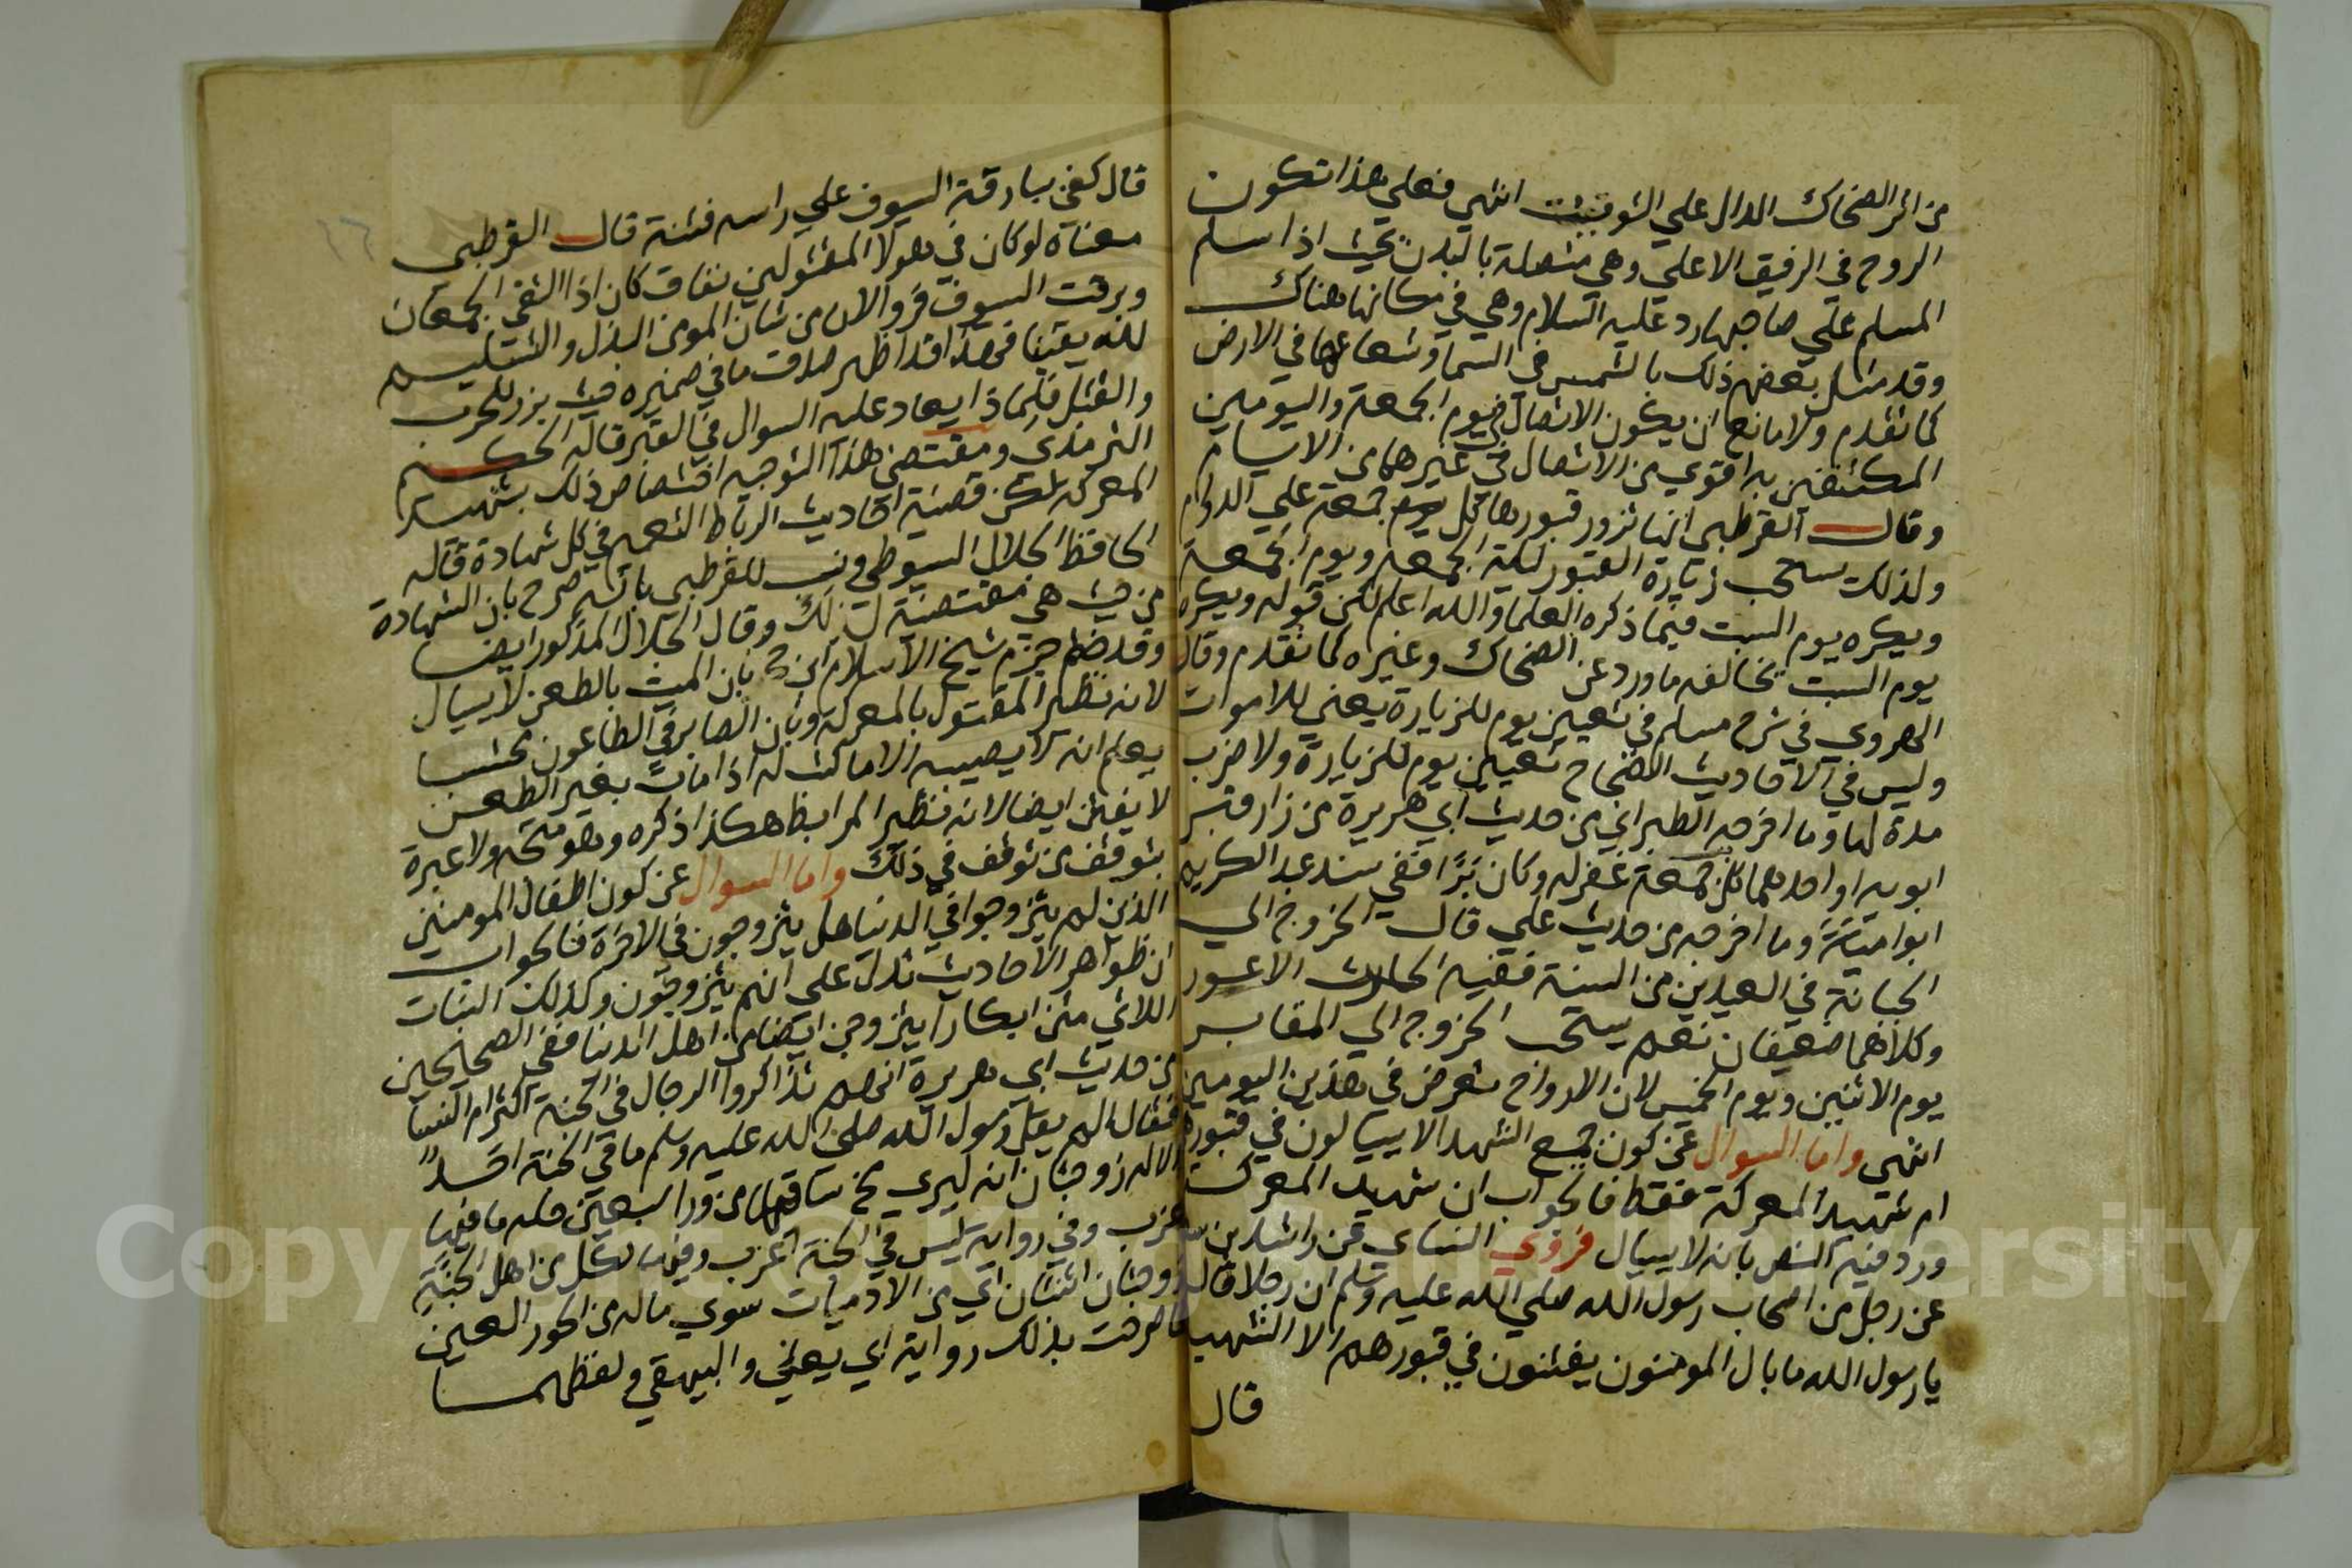 من اثر الضحاك الدال علي التوقيت انتهي فعلي هذا تكون
الروح في الرفيق الاعلي وهي متصلة بالبدن بحيث اذا سلم
المسلم علي صاحبها رد عليه السلام وهي في مكانها هناك
وقد مثل بعضهم ذلك بالشمس في السما وشعاعها في الارض
كما تقدم ولا مانع ان يكون الاتصال في يوم الجمعة واليومين
المكتنفين به اقوي من الاتصال في غيرهما من الايام
وقال القرطبي انها تزور قبورها كل يوم جمعة علي الدوام
ولذلك يستحب زيارة القبور ليلة الجمعة ويوم الجمعة
ويكره يوم السبت فيما ذكره العلما والله اعلم لكن قوله ويكره
يوم السبت يخالفه ما ورد عن الضحاك وغيره كما تقدم وقال
الهروي في شرح مسلم في تعيين يوم للزيارة يعني للاموات
وليس في الاحاديث الصحاح تعيين يوم للزيارة ولا ضرب
مدة لها وما اخرجه الطبراني من حديث ابي هريرة من زار قبر
ابويه او احدهما كل جمعة غفر له وكان برا ففي سنده عبد الكريم
ابو امية وما اخرجه من حديث علي قال الخروج الي
الجبانة في العيدين من السنة ففيه الحارث الاعور
وكلاهما ضعيفان نعم يستحب الخروج الي المقابر
يوم الاثنين ويوم الخميس لان الارواح تعرض في هذين اليومين
انتهي واما السوال عن كون جميع الشهدا لا يسالون في قبورهم
ام شهيد المعركة فقط فالجواب ان شهيد المعركة
ورد فيه النص بانه لا يسال فروي النساي عن راشد بن سعد
عن رجل من اصحاب رسول الله صلي الله عليه وسلم ان رجلا قال
يا رسول الله ما بال المومنون يفتنون في قبورهم الا الشهيد
قال
قال كفي ببارقة السيوف علي راسه فتنة قال القرطبي
معناه لو كان في هولا المقتولين نفاق كان اذا التقي الجمعان
وبرقت السيوف فروا لان من شان المومن البذل والتسليم
لله يقينا فهذا قد اظهر صدق ما في ضميره حيث برز للحرب
والقتل فلماذا يعاد عليه السوال في القبر قاله الحكيم
الترمذي ومقتضي هذا التوجيه اختصاص ذلك بشهيد
المعركة لكن قضية احاديث الرباط التعميم في كل شهادة قاله
الحافظ الجلال السيوطي ونسب للقرطبي بانه صرح بان الشهادة
من حيث هي مقتضية لذلك وقال الجلال المذكور ايضا
وقد جزم شيخ الاسلام ابن حجر بان الميت بالطعن لا يسال
لانه نظير المقتول بالمعركة وبان الصابر في الطاعون محتسبا
يعلم انه لا يصيبه الا ما كتب له اذا مات بغير الطعن
لا يفتن ايضا لانه نظير المرابط هكذا ذكره وهو متجه ولا عبرة
بتوقف من توقف في ذلك واما السوال عن كون اطفال المومنين
الذين لم يتزوجوا في الدنيا هل يتزوجون في الاخرة فالجواب
ان ظواهر الاحاديث تدل علي انهم يتزوجون وكذلك البنات
اللاتي متن ابكارا يتزوجن ايضا من اهل الدنيا ففي الصحيحين
من حديث ابي هريرة انهم تذاكروا الرجال في الجنة اكثر ام النسا
فقال الم يقل رسول الله صلي الله عليه وسلم ما في الجنة احد
الا له زوجتان انه ليري مخ ساقهما من ورا سبعين حلة ما فيها
عزب وفي رواية ليس في الجنة اعزب وفيهما لكل من اهل الجنة
زوجتان اثنتان اي من الادميات سوي ماله من الحور العين
صرحت بذلك رواية ابي يعلي والبيهقي ولفظهما